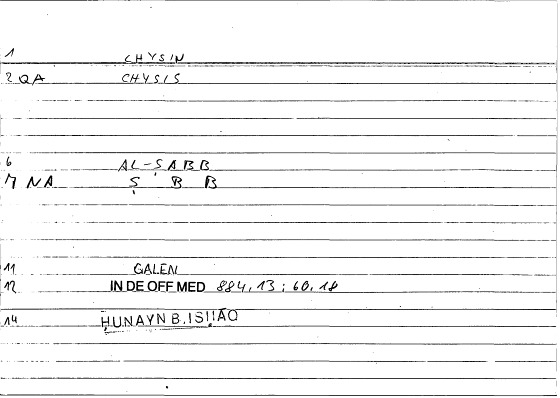 1 CHYSIN
2 QA CHYSIS
6 AL-ṢABB
7 NA Ṣ B B
11 GALEN
12 IN DE OFF MED 884,13 : 60,18
14 ḤUNAYN B. ISḤĀQ